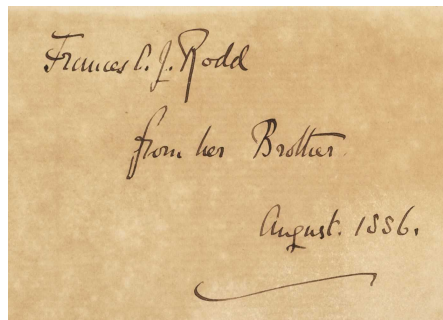 Frances C. J. Rodd
from her Brother
August. 1886.